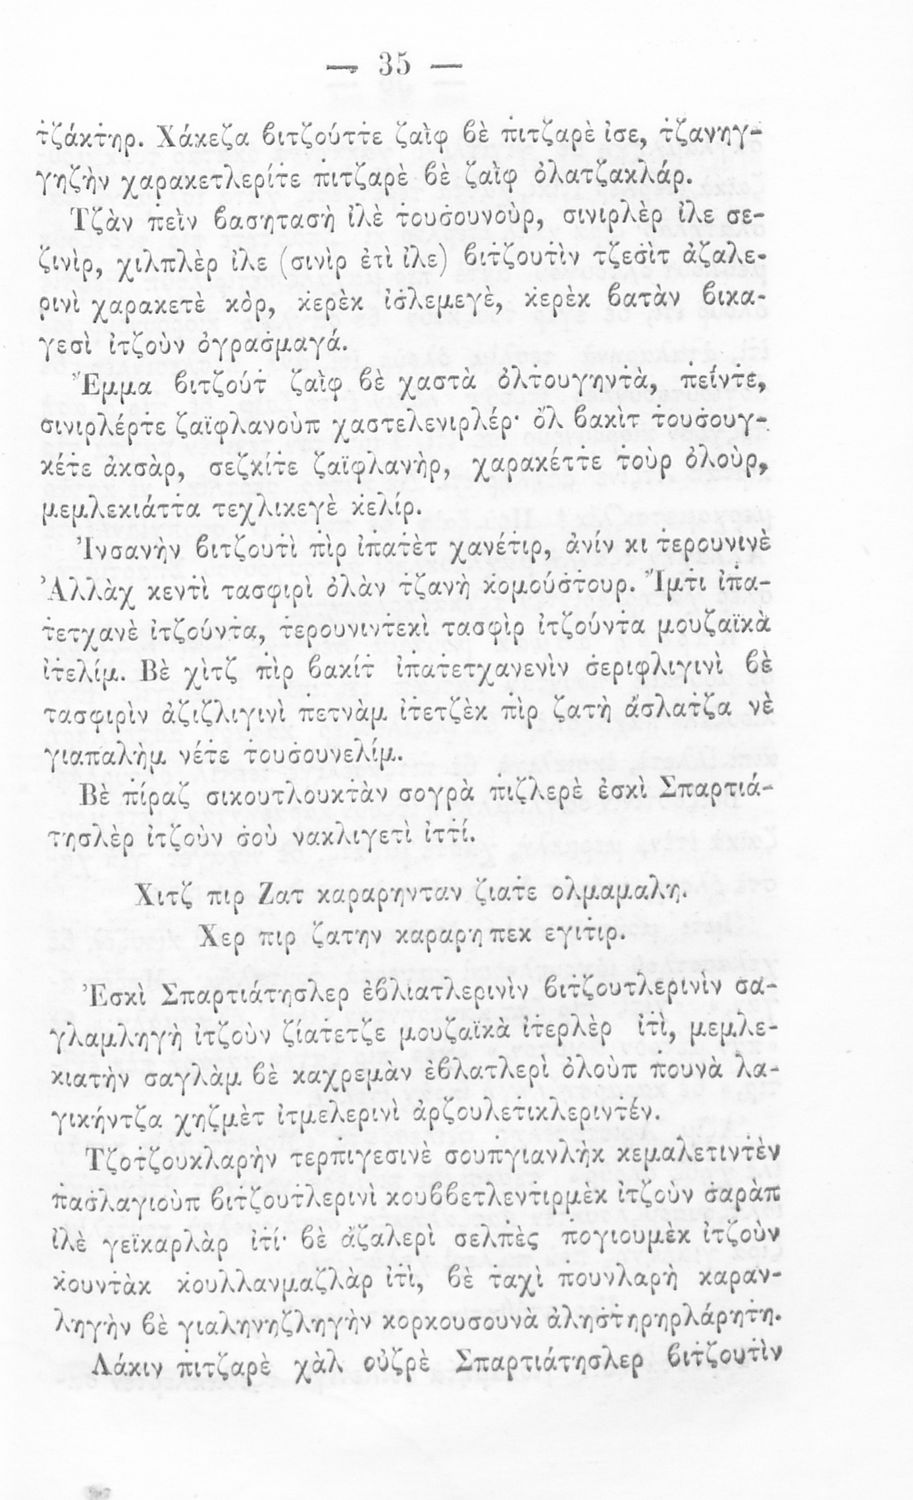 — 35 —
τζάκτηρ. Χάκεζα βιτζούττε ζαὶφ βὲ πιτζαρὲ ἰσε, τζανηγ-
γηζὴν χαρακετλερίτε πιτζαρὲ βὲ ζαὶφ ὀλατζακλάρ.
Τζὰν πεὶν βασητασὴ ἰλὲ τουσουνοὺρ, σινιρλὲρ ἰλε σε-
ζινὶρ, χιλπλὲρ ἰλε (σινὶρ ἐτὶ ἰλε) βιτζουτὶν τζεσὶτ ἀζαλε-
ρινὶ χαρακετὲ κὸρ, κερὲκ ἰσλεμεγὲ, κερὲκ βατὰν βικα-
γεσὶ ἰτζοὺν ὀγρασμαγά.
Ἔμμα βιτζούτ ζαὶφ βὲ χαστὰ ὀλτουγηντὰ, πεΐντε,
σινιρλέρτε ζαϊφλανοὺπ χαστελενιρλέρ· ὂλ βακὶτ τουσουγ-
κέτε ἀκσὰρ, σεζκίτε ζαϊφλανὴρ, χαρακέττε τοὺρ ὀλοὺρ,
μεμλεκιάττα τεχλικεγὲ κελίρ.
Ἰνσανὴν βιτζουτὶ πὶρ ἰπατὲτ χανέτιρ, ἀνίν κι τερουνινὲ
Ἀλλὰχ κεντὶ τασφιρὶ ὀλὰν τζανὴ κομούστουρ. Ἴμτι ἰπα-
τετχανὲ ἰτζούντα, τερουνιντεκὶ τασφὶρ ἰτζούντα μουζαϊκὰ
ἰτελίμ. Βὲ χὶτζ πὶρ βακίτ ἰπατετχανενὶν σεριφλιγινὶ βὲ
τασφιρὶν ἀζιζλιγινὶ πετνὰμ ἰτετζὲκ πὶρ ζατὴ ἄσλατζα νὲ
γιαπαλὴμ νέτε τουσουνελίμ.
Βὲ πίραζ σικουτλουκτὰν σογρὰ πιζλερὲ ἐσκὶ Σπαρτιά-
τησλὲρ ἰτζοὺν σοὺ νακλιγετὶ ἰττί.
Χιτζ πιρ Ζατ καραρηνταν ζιατε ολμαμαλη.
Χερ πιρ ζατην καραρη πεκ εγιτιρ.
Ἐσκὶ Σπαρτιάτησλερ ἐβλιατλερινὶν βιτζουτλερινὶν σα-
γλαμληγὴ ἰτζοὺν ζίατετζε μουζαϊκὰ ἰτερλὲρ ἰτὶ, μεμλε-
κιατὴν σαγλὰμ βὲ καχρεμὰν ἐβλατλερὶ ὀλοὺπ πουνὰ λα-
γικήντζα χηζμὲτ ἰτμελερινὶ ἀρζουλετικλεριντέν.
Τζοτζουκλαρὴν τερπιγεσινὲ σουπγιανλὴκ κεμαλετιντὲν
πασλαγιοὺπ βιτζουτλερινὶ κουββετλεντιρμὲκ ἰτζοὺν σαρὰπ
ἰλὲ γεϊκαρλὰρ ἰτί· βὲ ἀζαλερὶ σελπὲς πογιουμὲκ ἰτζοὺν
κουντὰκ κουλλανμαζλὰρ ἰτὶ, βὲ ταχὶ πουνλαρὴ καραν-
ληγὴν βὲ γιαληνηζληγὴν κορκουσουνὰ ἀληστηρηρλάρητη.
Λάκιν πιτζαρὲ χὰλ οὐζρὲ Σπαρτιάτησλερ βιτζουτὶν